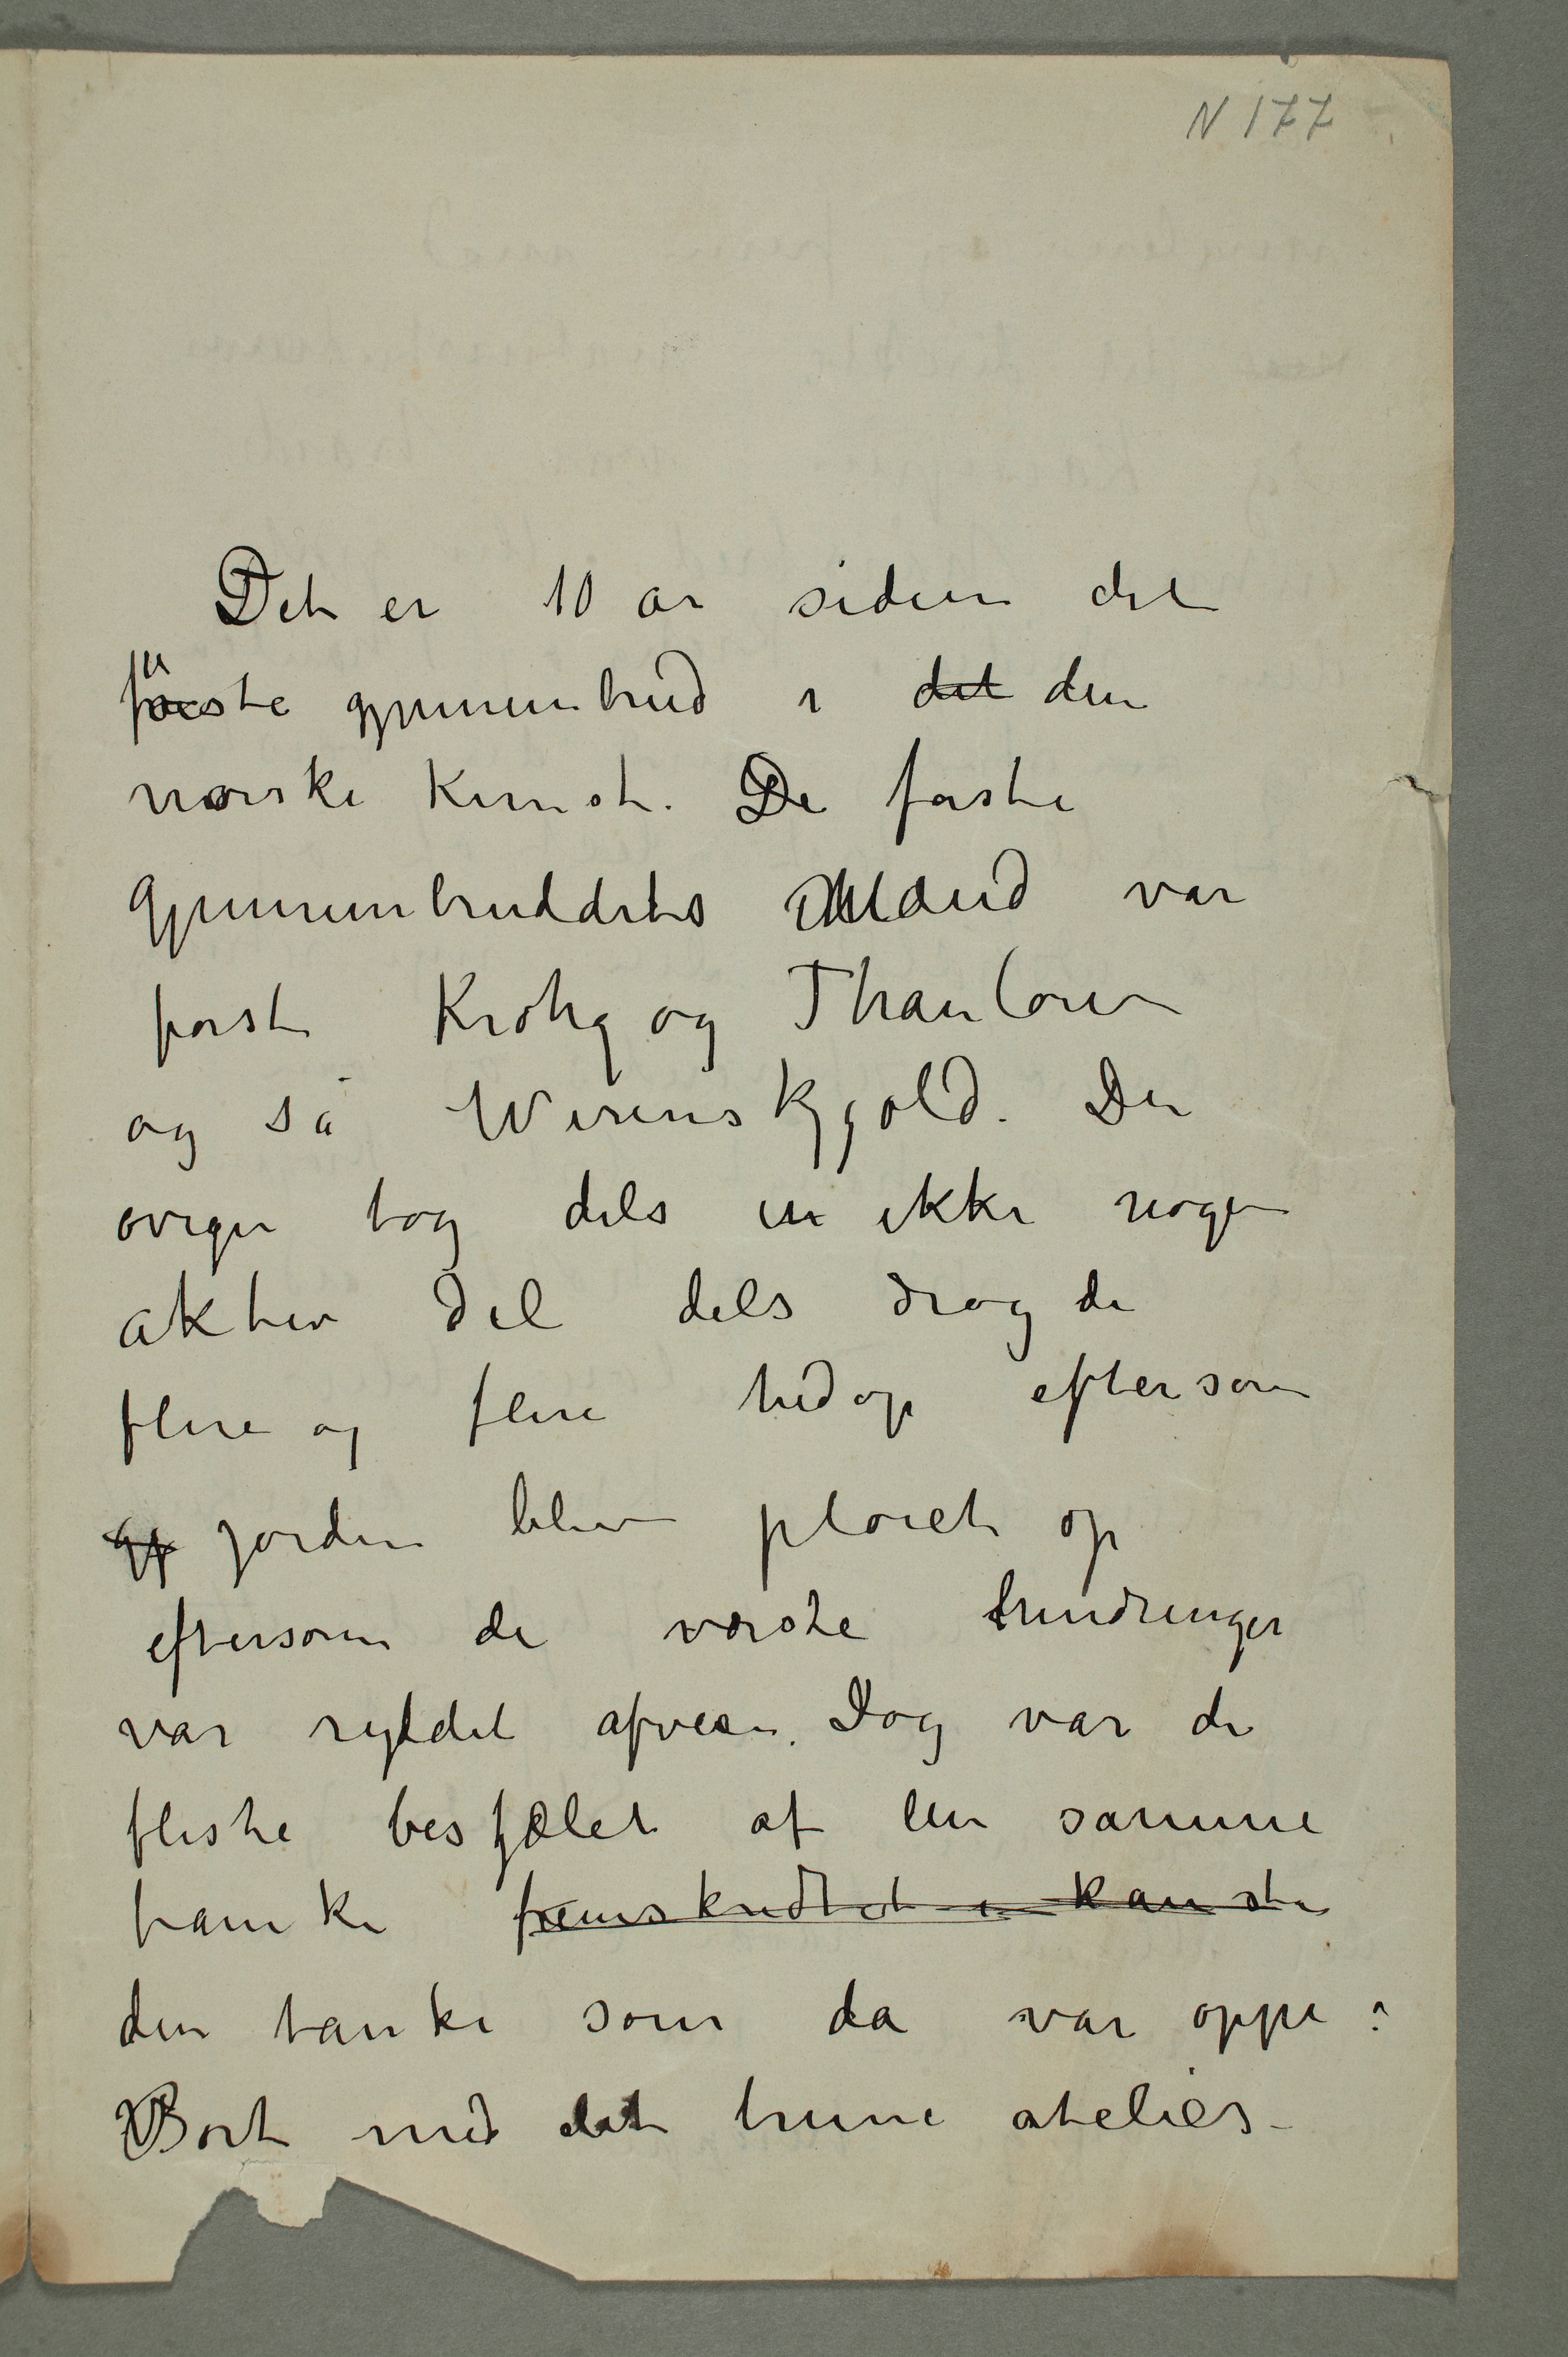 N 177
Det er 10 år siden det
første gjennembrud i det den
norske Kunst. De første
Gjennembruddets Mænd var
først Krohg og Thaulow
og så Werenskjold. De
øvrige tog dels en ikke nogen
aktiv del dels drog de
flere og flere hid op eftersom
gj jorden blev pløiet op
eftersom de værste hindringer
var ryddet afveien. Dog var de
fleste besjælet af den samme
tanke fremskudtet i kunste
den tanke som da var oppe:
Bort med det brune atelier-